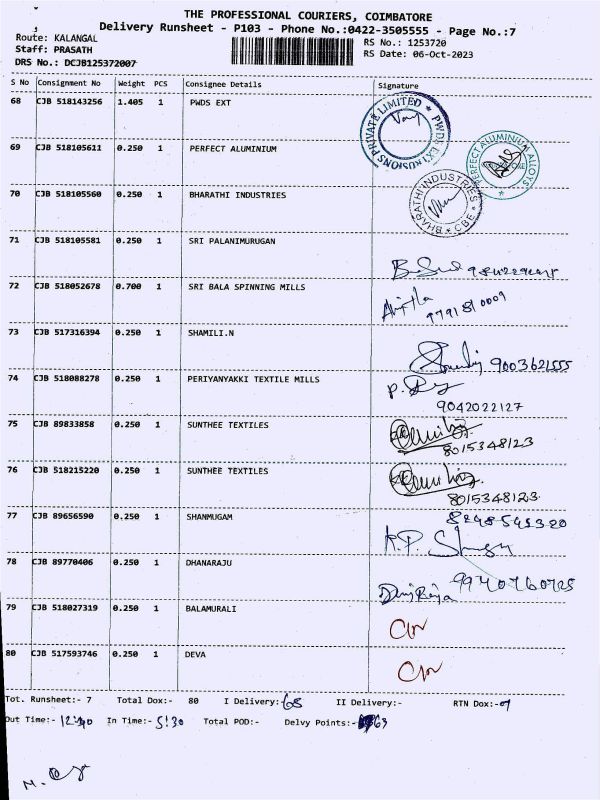 THE PROFESSIONAL COURIERS, COIMBATORE
Delivery Runsheet - P103 - Phone No.:0422-3505555 - Page No.:7
Route: KALANGAL
Staff: PRASATH
DRS No.: DCJB125372007
RS No.: 1253720
RS Date: 06-Oct-2023
S No Consignment No Weight PCS Consignee Details Signature
68 CJB 518143256 1.405 1 PWDS EXT
PWDS EXTRUSIONS PRIVATE LIMITED
69 CJB 518105611 0.250 1 PERFECT ALUMINIUM
PERFECT ALUMINIUM ALLOYS
70 CJB 518105560 0.250 1 BHARATHI INDUSTRIES
BHARATHI INDUSTRIES CBE
71 CJB 518105581 0.250 1 SRI PALANIMURUGAN
72 CJB 518052678 0.700 1 SRI BALA SPINNING MILLS
9791810009
73 CJB 517316394 0.250 1 SHAMILI.N
9003621555
74 CJB 518088278 0.250 1 PERIYANYAKKI TEXTILE MILLS
9042022127
75 CJB 89833858 0.250 1 SUNTHEE TEXTILES
8015348123
76 CJB 518215220 0.250 1 SUNTHEE TEXTILES
8015348123
77 CJB 89656590 0.250 1 SHANMUGAM
8248545320
78 CJB 89770406 0.250 1 DHANARAJU
79 CJB 518027319 0.250 1 BALAMURALI
80 CJB 517593746 0.250 1 DEVA
Tot. Runsheet:- 7 Total Dox:- 80 I Delivery:- 68 II Delivery:- RTN Dox:-
Out Time:- 12:40 In Time:- 5:30 Total POD:- Delvy Points:- 63